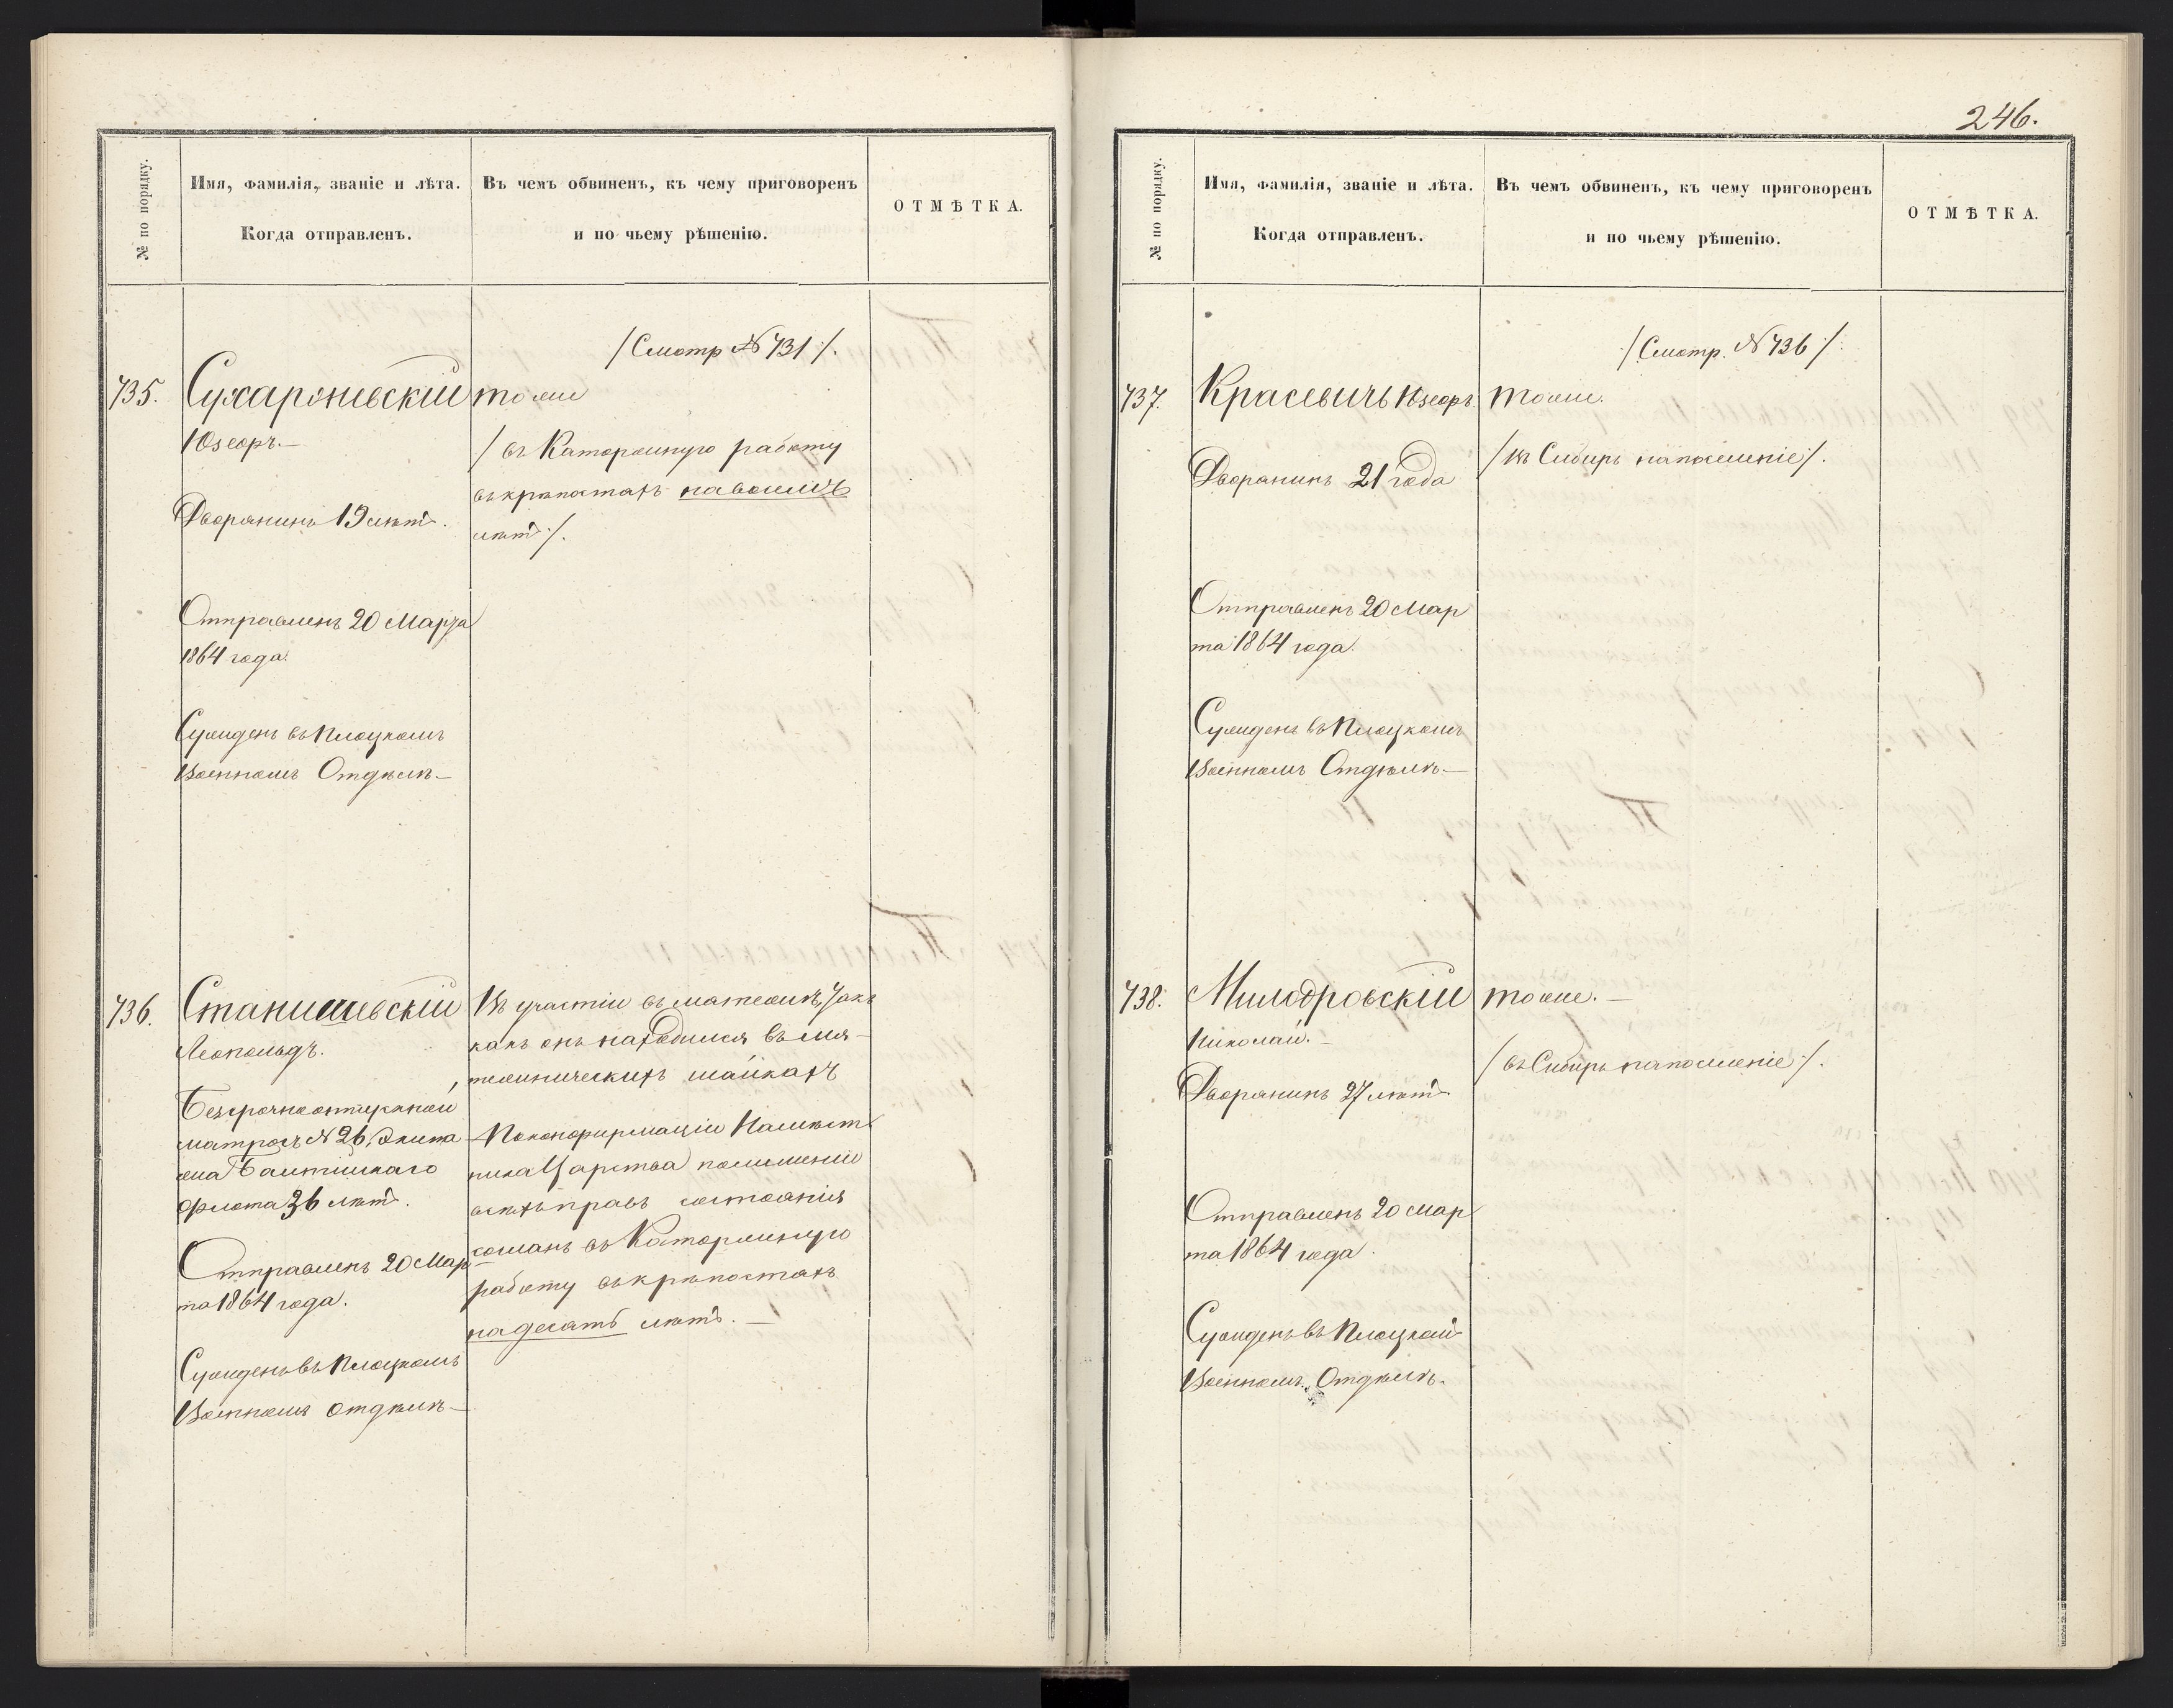 № по порядку.
Имя, фамилія, званіе и лѣта.
Когда отправленъ.
Въ чемъ обвиненъ, къ чему приговоренъ
и по чьему рѣшенію.
ОТМѢТКА.
/Смотр № 731/.
735.
Сухаржевскій
Юзефъ.—
Дворянинъ 19 лѣтъ.
Отправленъ 20 Марта
1864 года.
Сужденъ въ Плоцкомъ
Военномъ Отдѣлѣ—
тоже
/въ Каторжную работу
въ крѣпостяхъ на восемь
лѣтъ/.
736.
Станишевскій
Леопольдъ.
Безсрочноотпускной
матросъ № 26, Экипа
жа Балтійскаго
флота 36 лѣтъ.
Отправленъ 20 Мар
та 1864 года.
Сужденъ въ Плоцкомъ
Военномъ Отдѣлѣ—
Въ участіи въ мятежѣ,
какъ онъ находился въ мя-
тежническихъ шайкахъ
По конфирмаціи Намѣст
ника Царства по лишеніи
всѣхъ правъ состоянія
сосланъ въ Каторжную
работу въ крѣпостяхъ
на десять лѣтъ.—
246.
№ по порядку.
Имя, фамилія, званіе и лѣта.
Когда отправленъ.
Въ чемъ обвиненъ, къ чему приговоренъ
и по чьему рѣшенію.
ОТМѢТКА.
/Смотр. № 736/.
737.
Красевичъ Юзефъ.
Дворянинъ 21 года
Отправленъ 20 Мар
та 1864 года.
Сужденъ въ Плоцкомъ
Военномъ Отдѣлѣ.—
тоже.
/въ Сибирь на поселеніе/.
738.
Милодровскій
Николай.—
Дворянинъ 27 лѣтъ
Отправленъ 20 Мар
та 1864 года.
Сужденъ въ Плоцкомъ
Военномъ Отдѣлѣ.
тоже.—
/въ Сибирь на поселеніе/.